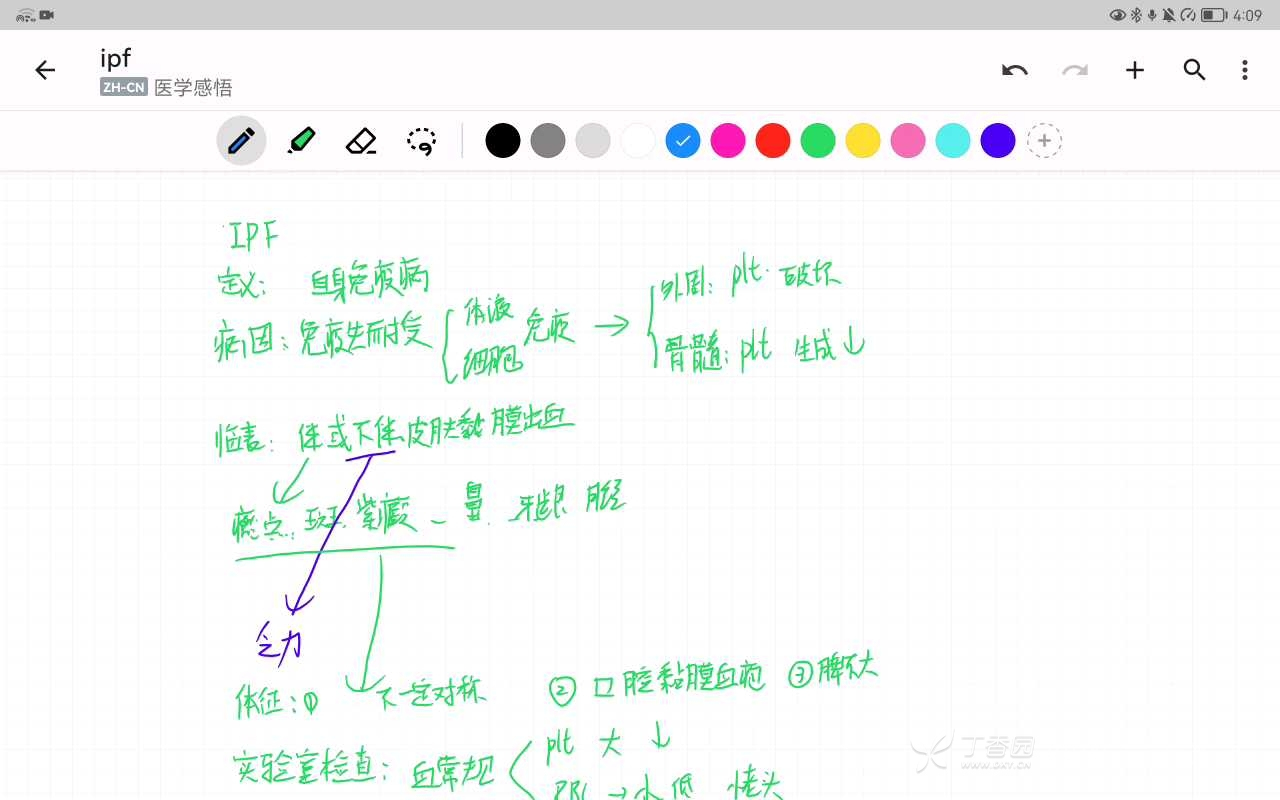 4:09
ipf
ZH-CN 医学感悟
IPF
定义: 自身免疫病
病因:免疫失耐受 体液 细胞 免疫 → 外周: plt 破坏
骨髓: plt 生成↓
临表: 伴或不伴皮肤黏膜出血
瘀点. 斑. 紫癜 鼻. 牙龈 月经
乏力
体征:① 不一定对称 ② 口腔黏膜血疱 ③脾不大
实验室检查: 血常规 plt 大 ↓
RBC → 小 低
丁香园
WWW.DXY.CN